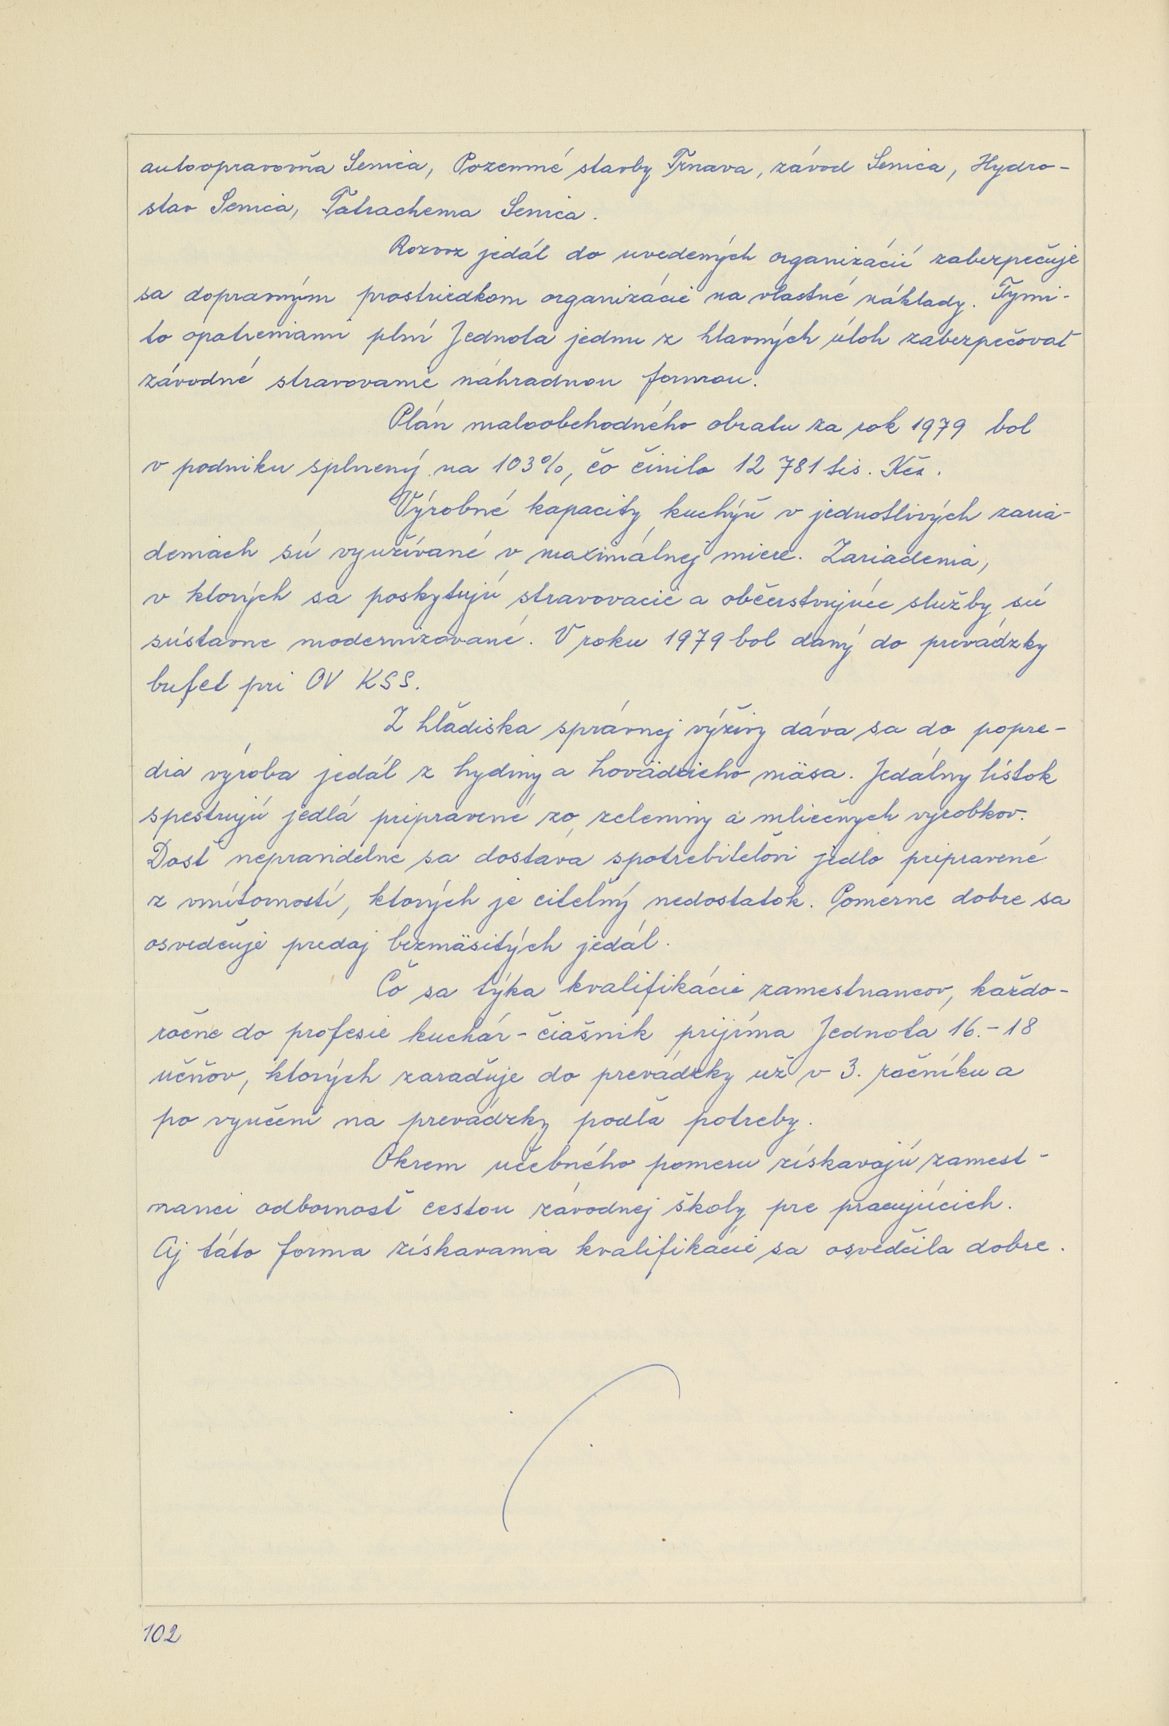 autoopravovňa Senica, Pozemné stavby Trnava, závod Senica, Hydro-
stav Senica, Tatrachema Senica.
Rozvoz jedál do uvedených organizácií zabezpečuje
sa dopravným prostriedkom organizácie na vlastné náklady. Tými-
to opatreniami plní Jednota jednu z hlavných úloh zabezpečovať
závodné stravovanie náhradnou formou.
Plán maloobchodného obratu za rok 1979 bol
v podniku splnený na 103%, čo činilo 12 781 tis. Kčs.
Výrobné kapacity kuchýň v jednotlivých zaria-
deniach sú využívané v maximálnej miere. Zariadenia,
v ktorých sa poskytujú stravovacie a občerstvujúce služby sú
sústavne modernizované. V roku 1979 bol daný do prevádzky
bufet pri OV KSS.
Z hľadiska správnej výživy dáva sa do popre-
dia výroba jedál z hydiny a hovädzieho mäsa. Jedálny lístok
spestrujú jedlá pripravené zo zeleniny a mliečnych výrobkov.
Dosť nepravidelne sa dostáva spotrebiteľovi jedlo pripravené
z vnútorností, ktorých je citeľný nedostatok. Pomerne dobre sa
osvedčuje predaj bezmäsitých jedál.
Čo sa týka kvalifikácie zamestnancov, každo-
ročne do profesie kuchár-čiašnik prijíma Jednota 16.-18
učňov, ktorých zaraďuje do prevádzky už v 3. ročníku a
po vyučení na prevádzky podľa potreby.
Okrem učebného pomeru získavajú zamest-
nanci odbornosť cestou závodnej školy pre pracujúcich.
Aj táto forma získavania kvalifikácie sa osvedčila dobre.
102